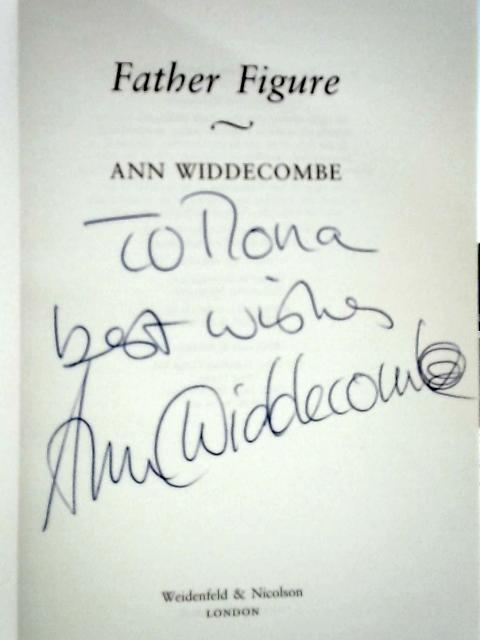 Father Figure
ANN WIDDECOMBE
To Mona
best wishes
Ann Widdecombe
Weidenfeld & Nicolson
LONDON